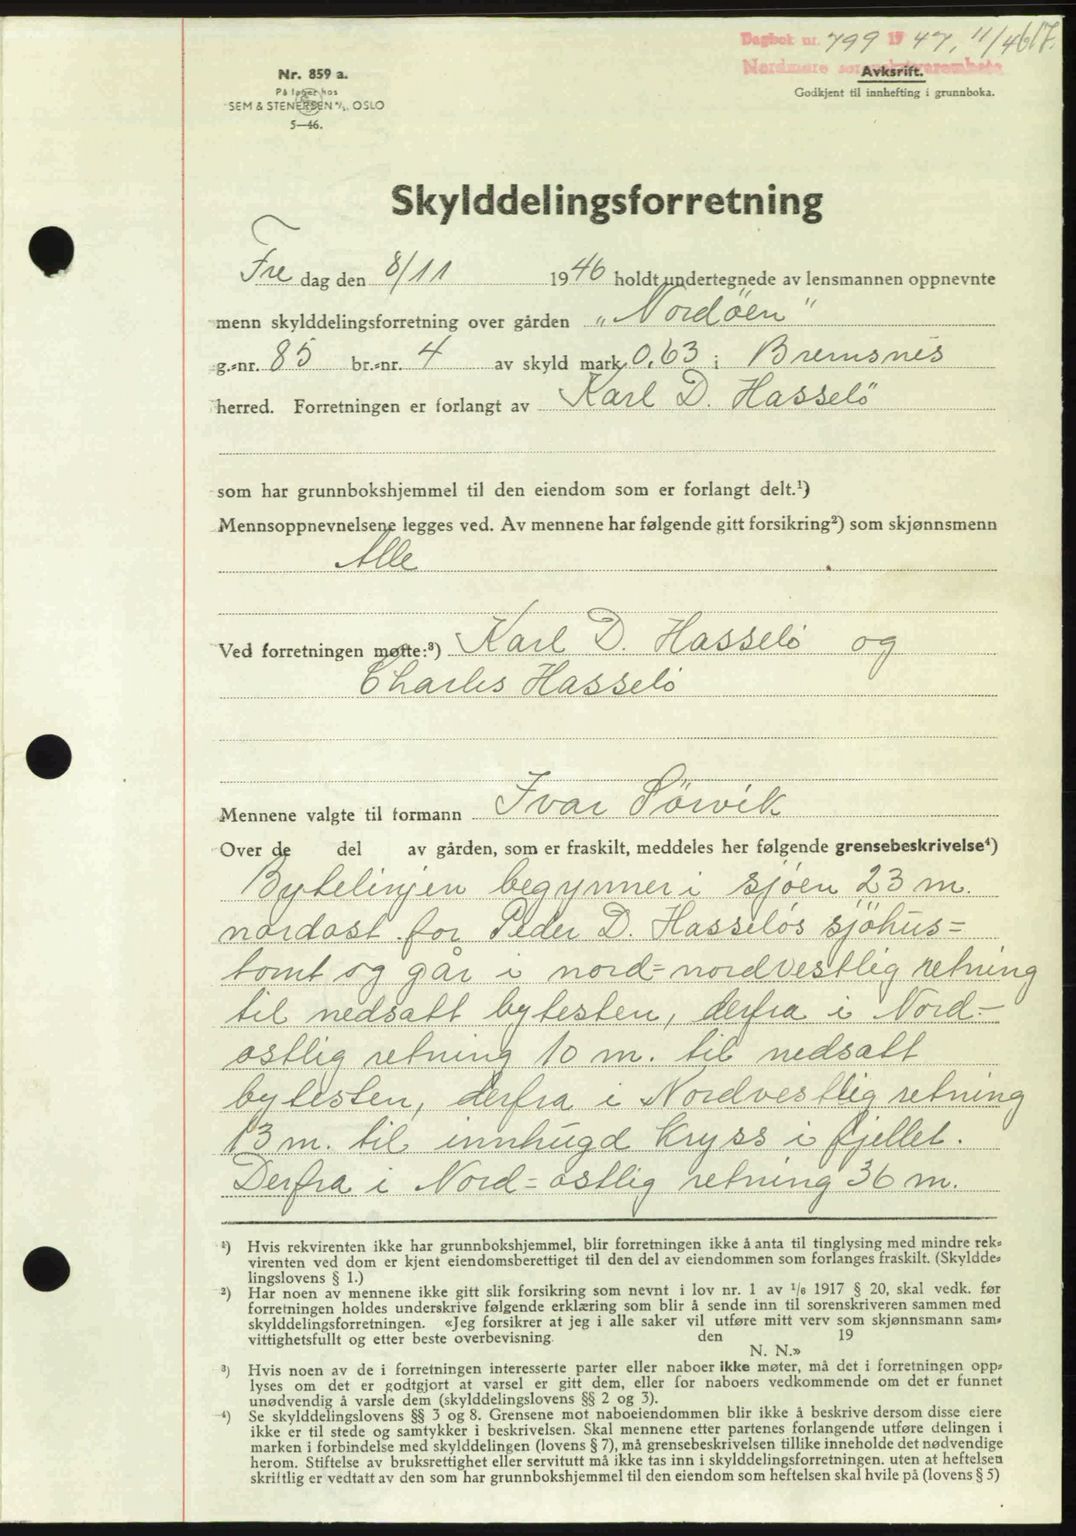 Dagbok nr. 799 1947, 11/4 617.
Nordmøre sorenskriverembete
Nr. 859 a.
På lager hos
SEM & STENERSEN A/S, OSLO
5—46.
Avkskrift.
Godkjent til innhefting i grunnboka.
Skylddelingsforretning
Fre dag den 8/11 1946 holdt undertegnede av lensmannen oppnevnte
menn skylddelingsforretning over gården „Nordöen”
g.-nr. 85 br.-nr. 4 av skyld mark 0,63 i Bremsnes
herred. Forretningen er forlangt av Karl D. Hasselö
som har grunnbokshjemmel til den eiendom som er forlangt delt.¹)
Mennsoppnevnelsene legges ved. Av mennene har følgende gitt forsikring²) som skjønnsmenn
Alle
Ved forretningen møtte:³) Karl D. Hasselö og
Charles Hasselö
Mennene valgte til formann Ivar Sörvik
Over de del av gården, som er fraskilt, meddeles her følgende grensebeskrivelse⁴)
Bytelinjen begynner i sjöen 23 m.
nordost for Peder D. Hasselös sjöhus=
tomt og går i nord=nordvestlig retning
til nedsatt bytesten, derfra i Nord-
ostlig retning 10 m. til nedsatt
bytesten, derfra i Nordvestlig retning
13 m. til innhugd kryss i fjellet.
Derfra i Nord=ostlig retning 36 m.
¹) Hvis rekvirenten ikke har grunnbokshjemmel, blir forretningen ikke å anta til tinglysing med mindre rek-
virenten ved dom er kjent eiendomsberettiget til den del av eiendommen som forlanges fraskilt. (Skyldde-
lingslovens § 1.)
²) Har noen av mennene ikke gitt slik forsikring som nevnt i lov nr. 1 av 1/6 1917 § 20, skal vedk. før
forretningen holdes underskrive følgende erklæring som blir å sende inn til sorenskriveren sammen med
skylddelingsforretningen. «Jeg forsikrer at jeg i alle saker vil utføre mitt verv som skjønnsmann sam-
vittighetsfullt og etter beste overbevisning. den 19
N. N.»
³) Hvis noen av de i forretningen interesserte parter eller naboer ikke møter, må det i forretningen opp-
lyses om det er godtgjort at varsel er gitt dem, eller for naboers vedkommende om det er funnet
unødvendig å varsle dem (skylddelingslovens §§ 2 og 3).
⁴) Se skylddelingslovens §§ 3 og 8. Grensene mot naboeiendommen blir ikke å beskrive dersom disse eiere
ikke er til stede og samtykker i beskrivelsen. Skal mennene etter partenes forlangende utføre delingen i
marken i forbindelse med skylddelingen (lovens § 7), må grensebeskrivelsen tillike inneholde det nødvendige
herom. Stiftelse av bruksrettighet eller servitutt må ikke tas inn i skylddelingsforretningen. uten at heftelsen
skriftlig er vedtatt av den som har grunnbokshjemmel til den eiendom som heftelsen skal hvile på (lovens § 5)